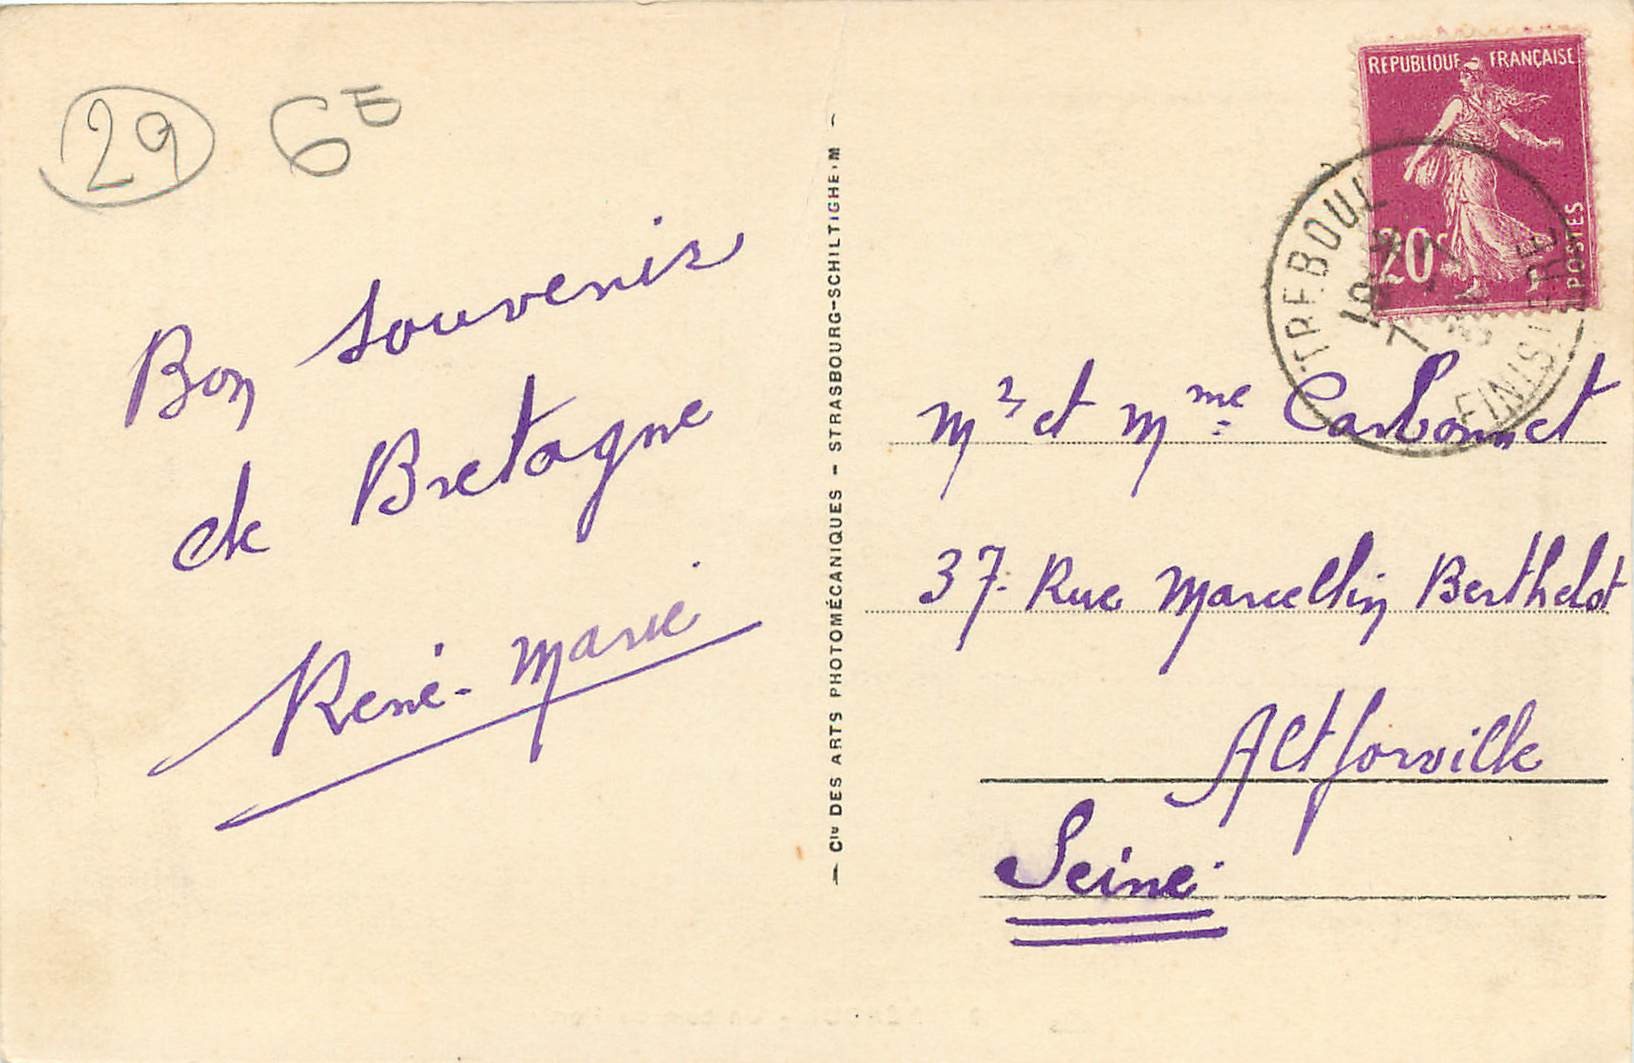 29
6E
Bon souvenir
de Bretagne
René-Marie
— Cie DES ARTS PHOTOMÉCANIQUES – STRASBOURG-SCHILTIGHEIM —
REPUBLIQUE FRANÇAISE
20c
POSTES
TREBOUL
FINISTERE
Mr et Mme Carbonnet
37. Rue Marcellin Berthelot
Altforville
Seine